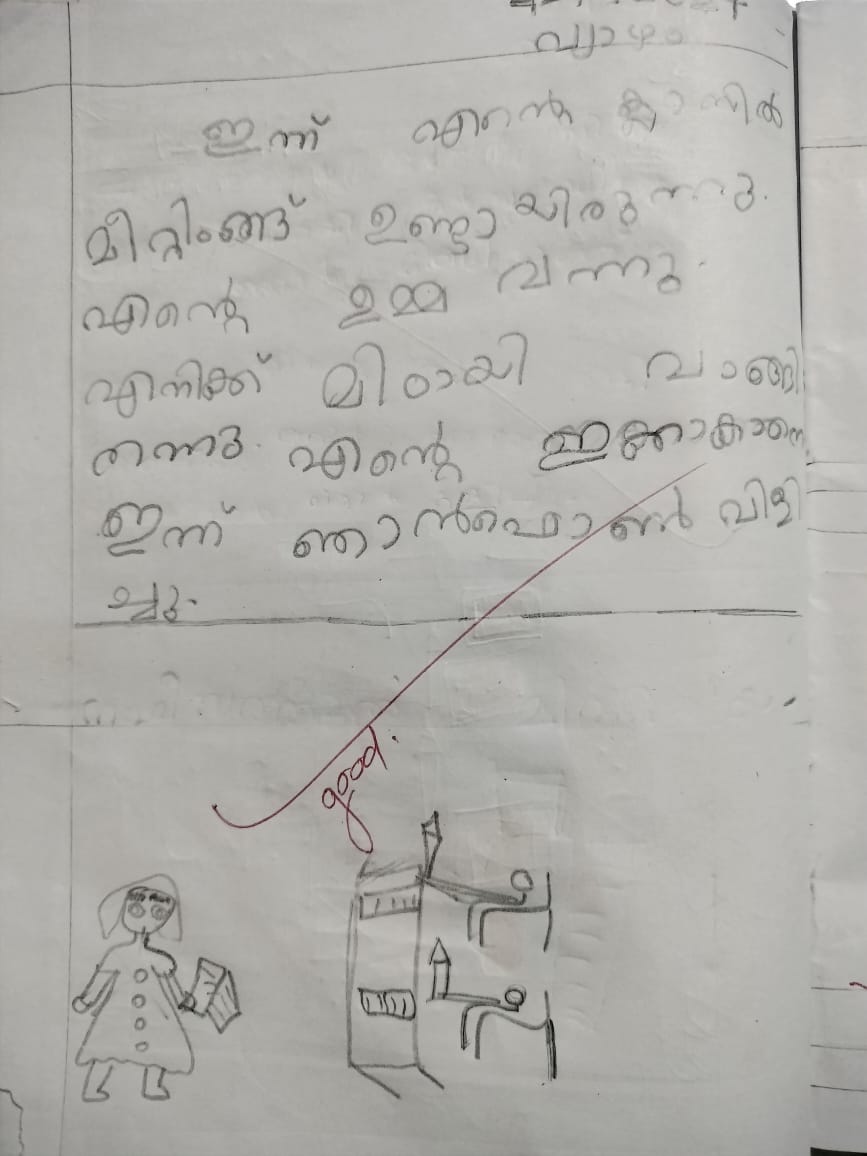 വ്യാഴം
ഇന്ന് എന്റെ ക്ലാസിൽ
മീറ്റിംങ്ങ് ഉണ്ടായിരുന്നു.
എന്റെ ഉമ്മ വന്നു.
എനിക്ക് മിഠായി വാങ്ങി
തന്നു. എന്റെ ഇക്കാകാനെ
ഇന്ന് ഞാൻഫോൺ വിളി
ച്ചു.
good.